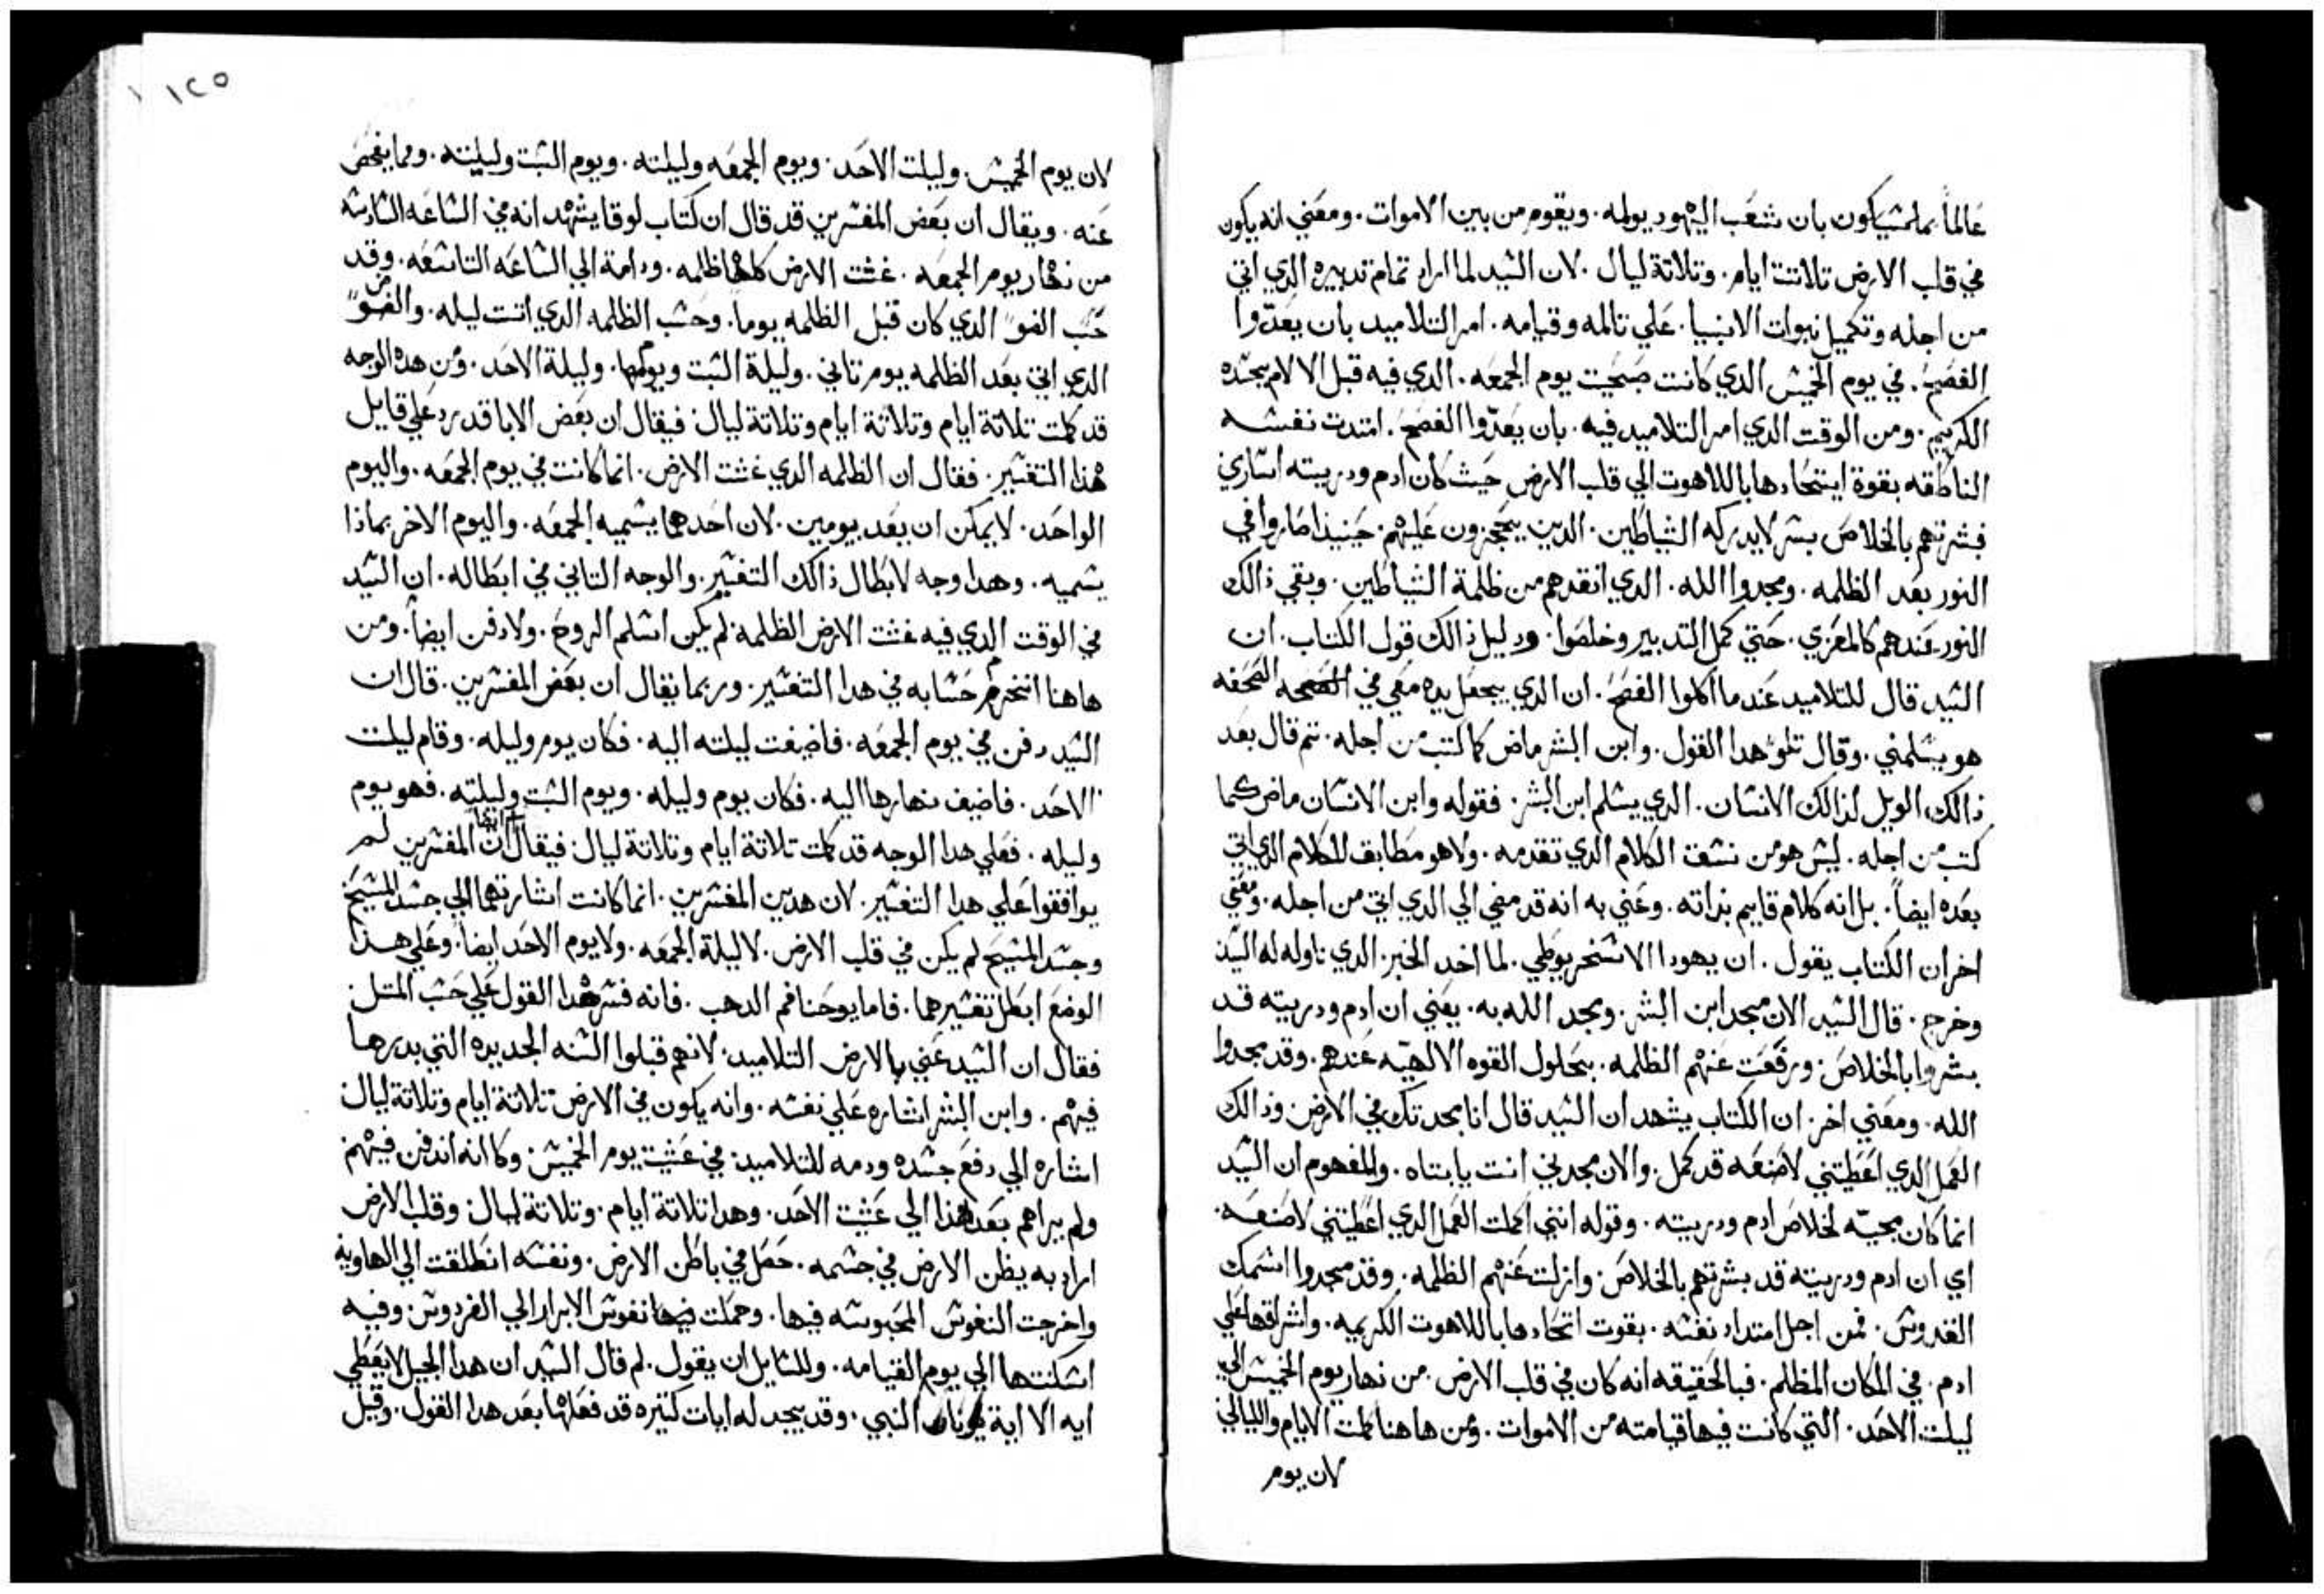 عالماً بما شيكون بان شعب اليهود يولمه. ويقوم من بين الاموات. ومعني انه يكون
في قلب الارض تلاتت ايام. وتلاتة ليال. لان الشيد لما اراد تمام تدبيره الدي اتي
من اجله وتكميل نبوات الانبيا. علي تالمه وقيامه. امر التلاميد بان يعدّوا
الفصح. في يوم الخميش الدي كانت صبحيت يوم الجمعه. الدي فيه قبل الالام بجشده
الكريم. ومن الوقت الدي امر التلاميد فيه. بان يعدّوا الفصح. امتدت نفشه
الناطقه بقوة ايتحادها باللاهوت الي قلب الارض حيث كان ادم ودريته اشاري
فبشرتهم بالخلاص بشر لايدركه الشياطين. الدين يحجزون عليهم. حينيذ اصاروا في
النور بعد الظلمه. ومجدوا الله. الدي انقدهم من ظلمة الشياطين. وبقي ذالك
النور عندهم كالمعزي. حتي كمل التدبير وخلصوا. ودليل ذالك قول الكتاب. ان
الشيد قال للتلاميد عندما اكلوا الفصح. ان الدي يجعل يده معي في الصحفه
هو يشلمني. وقال تلو هدا القول. وابن البشر ماض كما كتب من اجله. تم قال بعد
ذالك الويل لذالك الانشان. الدي يشلم ابن البشر. فقوله وابن الانشان ماض كما
كتب من اجله. ليش هو من نشق الكلام الدي تقدمه. ولا هو مطابق للكلام الدي اتي
بعده ايضاً. بل انه كلام قايم بداته. وعني به انه قد مضي الي الدي اتي من اجله. ومعني
اخر ان الكتاب يقول. ان يهودا الاشخريوطي. لما اخد الخبز الدي ناوله له الشيد
وخرج. قال الشيد الان مجد ابن البشر. ومجد الله به. يعني ان ادم ودريته قد
بشروا بالخلاص. ورفعت عنهم الظلمه. بحلول القوه الالهيّه عندهم. وقد مجدوا
الله. ومعني اخر. ان الكتاب يشهد ان الشيد قال انا مجدتك في الارض. وذالك
العمل الدي اعطيتني لاصنعه قد كمل. والان مجدني انت يا بتاه. والمفهوم ان الشيد
انما كان مجيّه لخلاص ادم ودريته. وقوله انني اكملت العمل الدي اعطيتني لاصنعه.
اي ان ادم ودريته قد بشرتهم بالخلاص. وازلت عنهم الظلمه. وقد مجدوا اشمك
القدوش. فمن اجل امتداد نفشه. بقوت اتحادها باللاهوت الكريمه. واشراقها علي
ادم. في المكان المظلم. فبالحقيقه انه كان في قلب الارض. من نهار يوم الخميش الي
ليلت الاحد. التي كانت فيها قيامته من الاموات. ومن هاهنا كملت الايام والليالي
لان يوم
١٢٥
لان يوم الخميش. وليلت الاحد. ويوم الجمعه وليلته. ويوم الشبت وليلته. ومما يفحص
عنه. ويقال ان بعض المفشرين قد قال ان كتاب لوقا يشهد انه في الشاعه الشادشه
من نهار يوم الجمعه. غشت الارض كلها ظلمه. ودامة الي الشاعه التاشعه. وقد
حشب الضو الدي كان قبل الظلمه يوماً. وحشب الظلمه الدي اتت ليله. والضو
الدي اتي بعد الظلمه يوم تاني. وليلة الشبت ويومها. وليلة الاحد. ومن هده الوجه
قد كملت تلاتة ايام وتلاتة ايام وتلاتة ليال. فيقال ان بعض الابا قد رد علي قايل
هذا التفشير. فقال ان الظلمه الدي غشت الارض. انما كانت في يوم الجمعه. واليوم
الواحد. لا يمكن ان يعد بيومين. لان احدهما يشميه الجمعه. واليوم الاخر بماذا
يشميه. وهدا وجه لابطال ذالك التفشير. والوجه التاني في ابطاله. ان الشيد
في الوقت الدي فيه غشت الارض الظلمه لم يكن اشلم الروح. ولا دفن ايضاً. ومن
هاهنا انخرم حشابه في هدا التفشير. وربما يقال ان بعض المفشرين. قال ان
الشيد دفن في يوم الجمعه. فاضيفت ليلته اليه. فكان يوم وليله. وقام ليلت
الاحد. فاضيف نهارها اليه. فكان يوم وليله. ويوم الشبت وليلته. فهو يوم
وليله. فعلي هدا الوجه قد كملت تلاتة ايام وتلاتة ليال. فيقال ان المفشرين لم
يوافقوا علي هدا التفشير. لان هدين المفشرين. انما كانت اشارتهما الي جشد المشيح
وجشد المشيح لم يكن في قلب الارض. لا ليلة الجمعه. ولا يوم الاحد ايضاً. وعلي هذا
الوضع ابطل تفشيرهما. فاما يوحنا فم الدهب. فانه فشر هدا القول علي حشب المتل
فقال ان الشيد عني بالارض التلاميد. لانهم قبلوا الشنه الجديده التي بدرها
فيهم. وابن البشر اشاره علي نفشه. وانه يكون في الارض تلاتة ايام وتلاتة ليال
اشاره الي دفع جشده ودمه للتلاميد. في عشيت يوم الخميش. وكاانه اندفن فيهم
ولم يراهم بعد هذا الي عشيت الاحد. وهدا تلاتة ايام. وتلاتة ليال. وقلب الارض
اراد به بطن الارض في جشمه. حصل في باطن الارض. ونفشه انطلقت الي الهاويه
واخرجت النفوش المحبوشه فيها. وحملت نفوش الابرار الي الفردوش. وفيه
اشكنتها الي يوم القيامه. وللشايل ان يقول. لم قال الشيد ان هدا الجيل لا يعطي
ايه الا اية يونان النبي. وقد يجد له ايات كتيره قد فعلها بعد هدا القول. وقبل